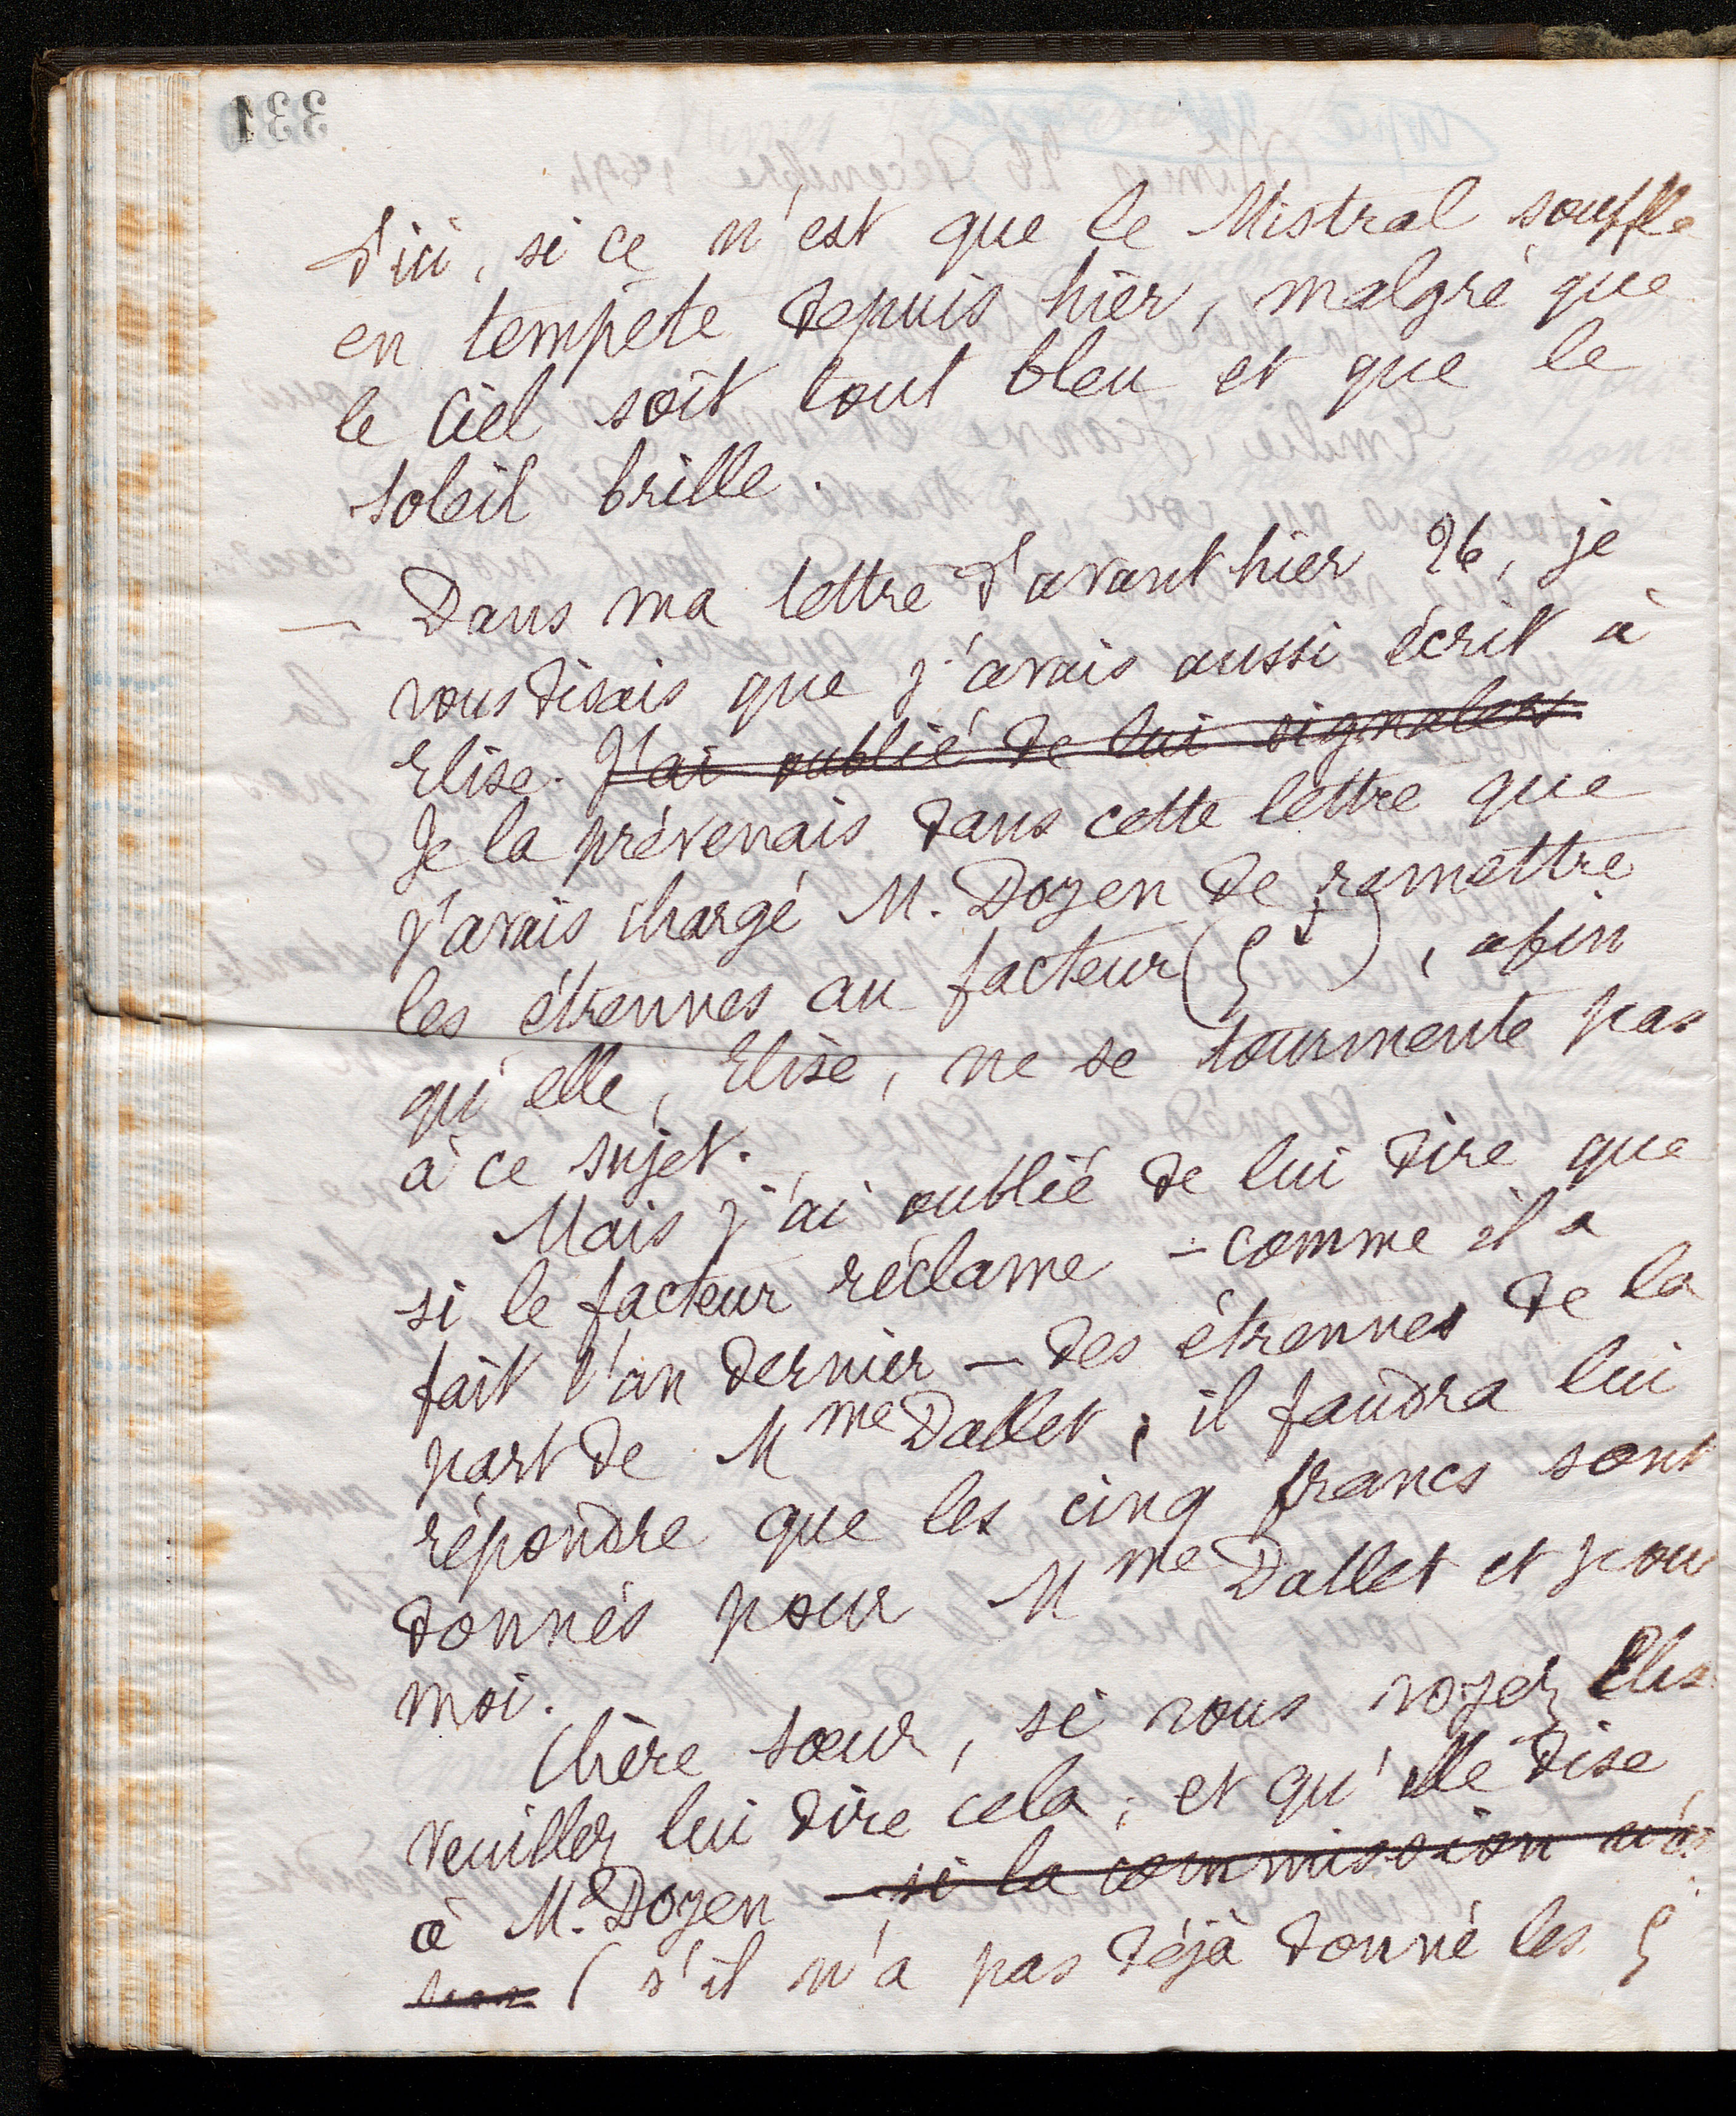 331
d'ici, si ce n'est que le Mistral souffle
en tempête depuis hier, malgré que
le Ciel soit tout bleu et que le
soleil brille.
— Dans ma lettre d'avant hier 26, je
vous disais que j'avais aussi écrit à
Elise. J'ai oublié de lui signaler
Je la prévenais dans cette lettre que
j'avais chargé M. Doyen de remettre
les étrennes au facteur (5 f), afin
qu'elle, Elise, ne se tourmente pas
à ce sujet.
Mais j'ai oublié de lui dire que
si le facteur réclame - comme il a
fait l'an dernier - des étrennes de la
part de Mme Dallet, il faudra lui
répondre que les cinq francs sont
donnés pour Mme Dallet et pour
moi.
Chère sœur, si vous voyez Elis
veuillez lui dire cela; et qu'elle dise
à M. Doyen - si la commission n'est
pas ( s'il n'a pas déjà donné les 5